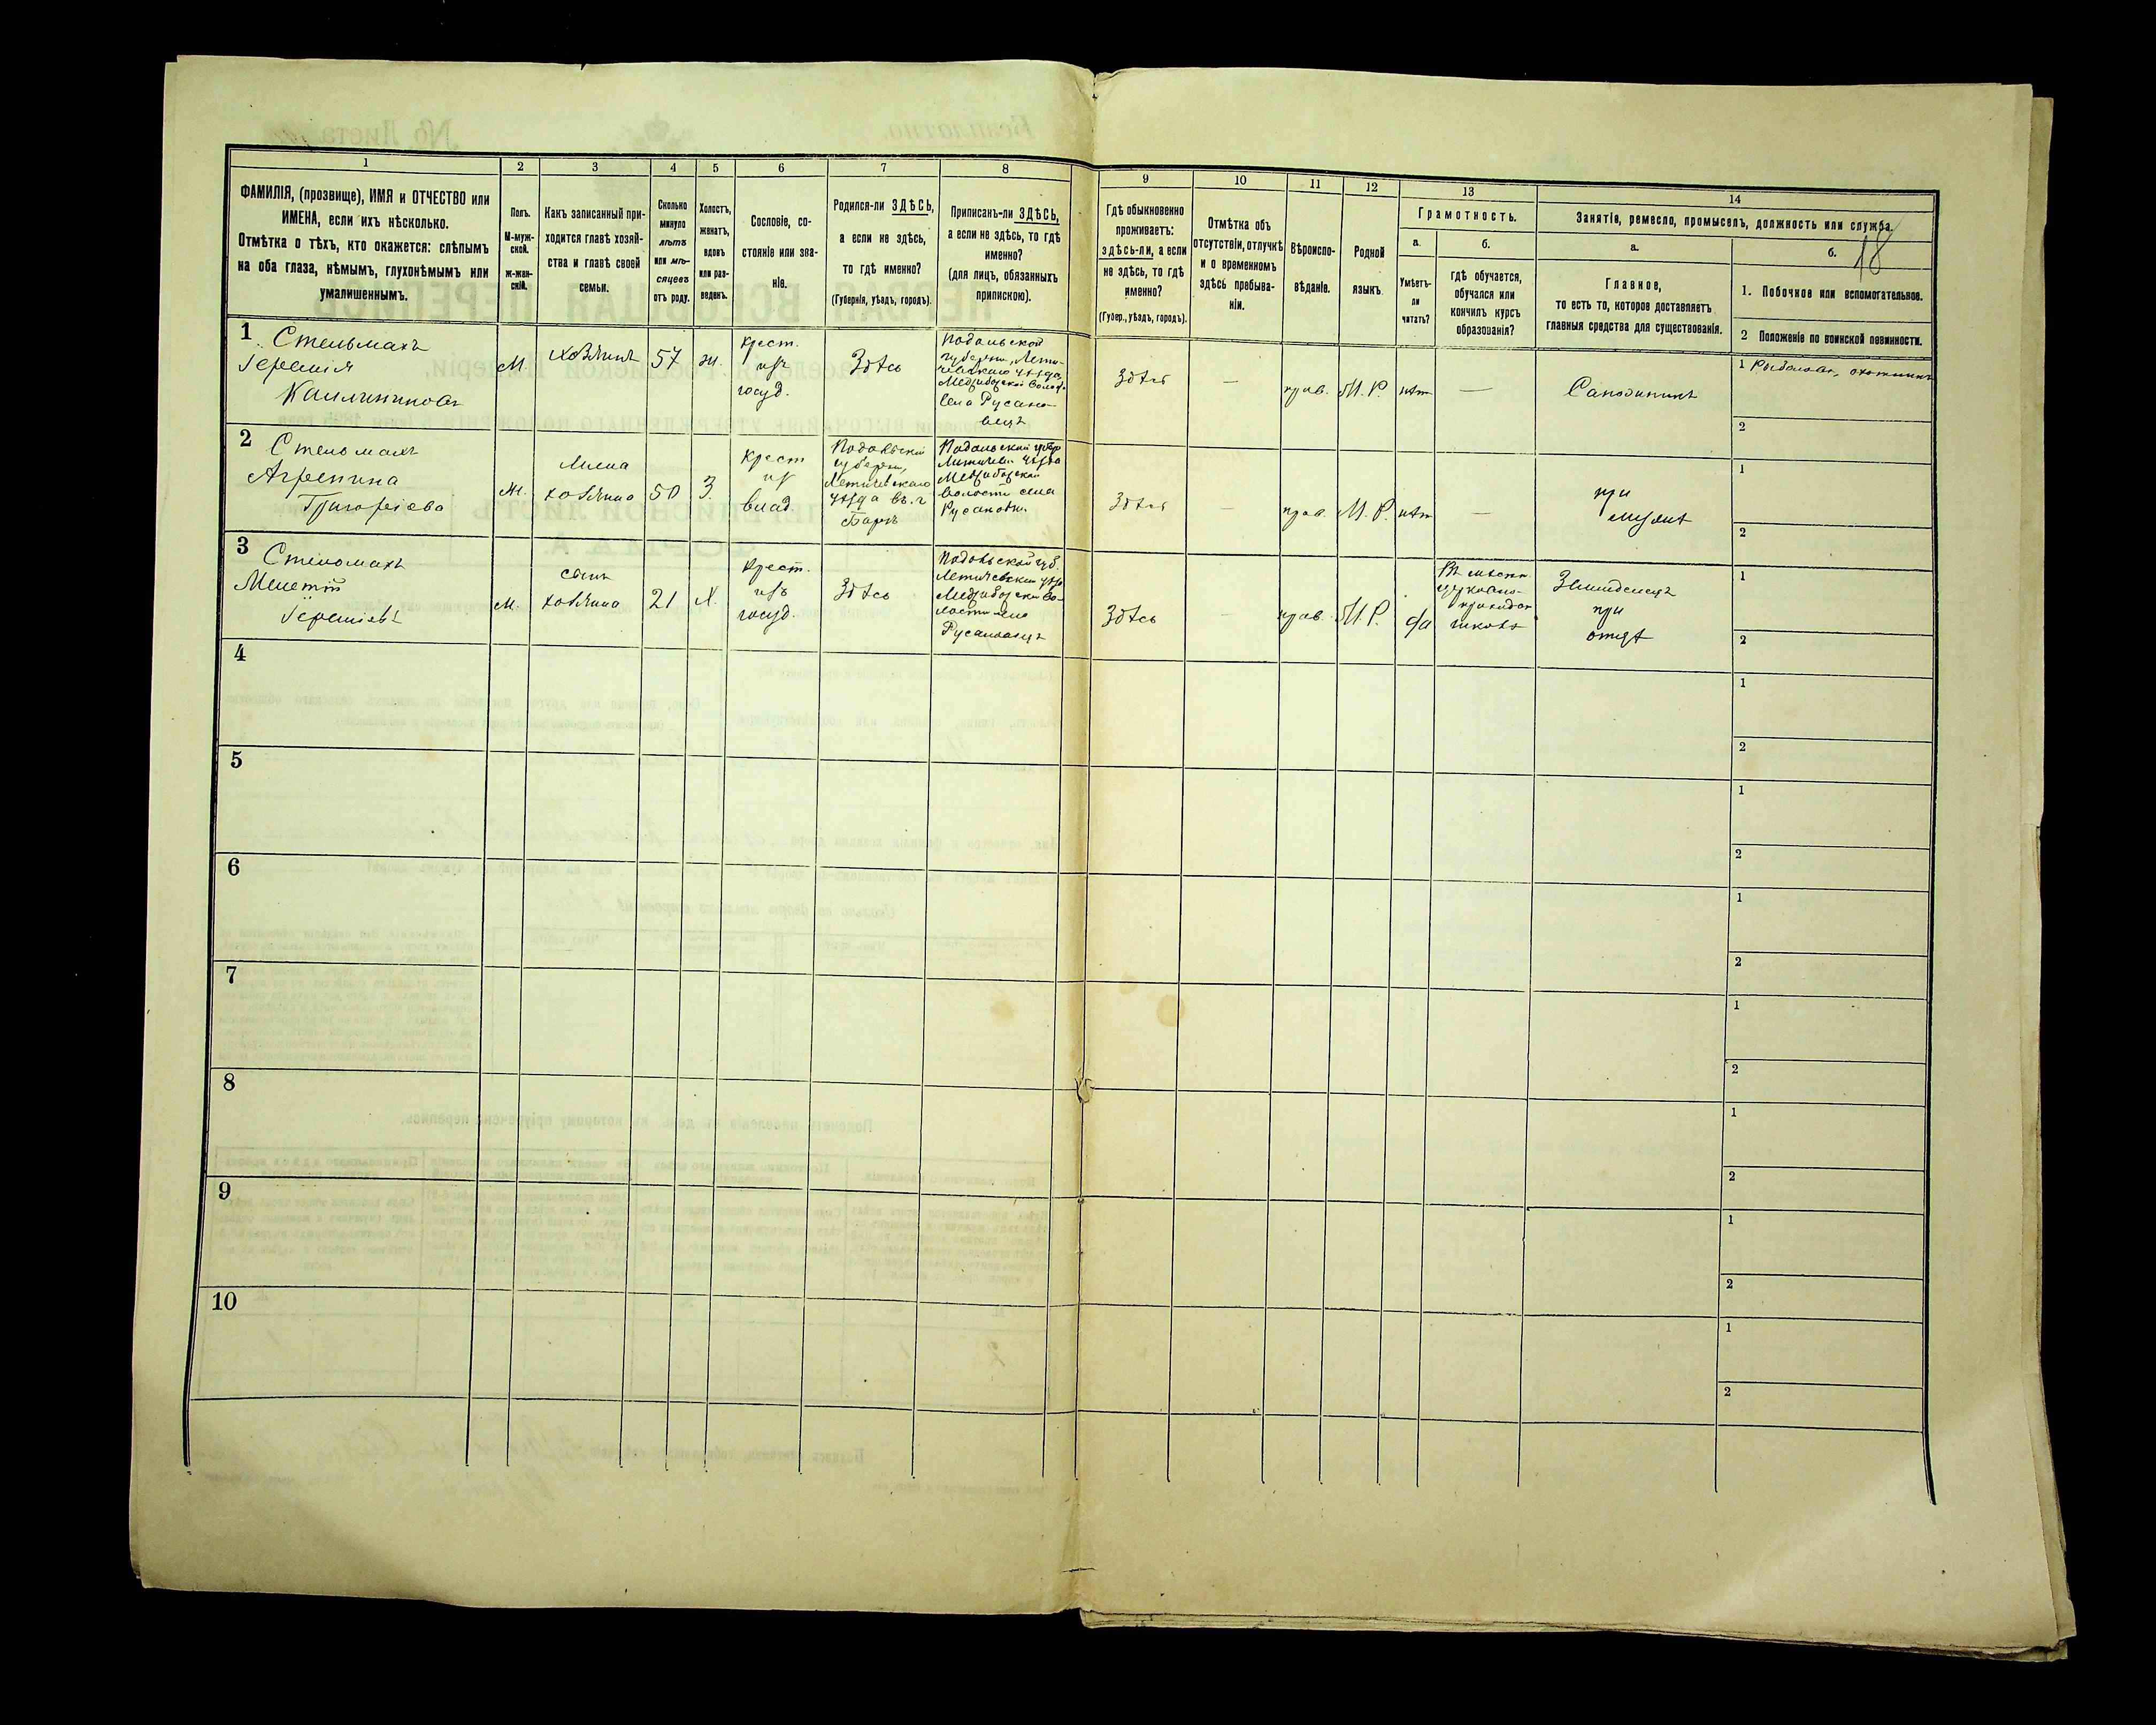 1
2
3
4
5
6
7
8
9
10
11
12
13
14
ФАМИЛІЯ, (прозвище), ИМЯ и ОТЧЕСТВО или
ИМЕНА, если ихъ нѣсколько.
Отмѣтка о тѣхъ, кто окажется: слѣпымъ
на оба глаза, нѣмымъ, глухонѣмымъ или
умалишеннымъ.
Полъ.
М-муж-
ской.
ж-жен-
скій.
Какъ записанный при-
ходится главѣ хозяй-
ства и главѣ своей
семьи.
Сколько
минуло
лѣтъ
или мѣ-
сяцевъ
отъ роду.
Холостъ,
женатъ,
вдовъ
или раз-
веденъ.
Сословіе, со-
стояніе или зва-
ніе.
Родился-ли ЗДѢСЬ,
а если не здѣсь,
то гдѣ именно?
(Губернія, уѣздъ, городъ).
Приписанъ-ли ЗДѢСЬ,
а если не здѣсь, то гдѣ
именно?
(для лицъ, обязанныхъ
припискою).
Гдѣ обыкновенно
проживаетъ:
здѣсь-ли, а если
не здѣсь, то гдѣ
именно?
(Губер., уѣздъ, городъ).
Отмѣтка объ
отсутствіи, отлучкѣ
и о временномъ
здѣсь пребыва-
ніи.
Вѣроиспо-
вѣданіе.
Родной
языкъ.
Грамотность.
а.
Умѣетъ-
ли
читать?
б.
гдѣ обучается,
обучался или
кончилъ курсъ
образованія?
Занятіе, ремесло, промыселъ, должность или служба.
а.
Главное,
то есть то, которое доставляетъ
главныя средства для существованія.
б.
18
1. Побочное или вспомогательное.
2 Положеніе по воинской повинности.
1 Стельмахъ
Іеремія
Каллиниковъ
М.
хозяинъ
57
ж.
крест.
изъ
госуд.
Здѣсь
Подольской
губерніи, Лети-
чевскаго уѣзда
Меджибожской волос.
села Русано-
вецъ
Здѣсь
—
прав.
М. Р.
нѣт
—
Сапожникъ
1 Рыболовъ, охотникъ
2
2 Стельмахъ
Агрепина
Григоріева
Ж.
Жена
хозяина
50
З.
Крест
из
влад.
Подольской
губерніи,
Летичевскаго
уѣзда въ г.
Барѣ
Подольской губер.
Летичевск уѣзда
Меджибожской
волости села
Русановки.
Здѣсь
прав.
М. Р.
нѣт
—
при
мужѣ
1
2
3 Стельмахъ
Мелетій
Іереміевъ
М.
сынъ
хозяина
21
Х.
Крест.
изъ
госуд.
Здѣсь
Подольской губ.
Летичевской уѣзд
Меджибожской во-
лости села
Русановецъ
Здѣсь
—
прав.
М. Р.
да
Въ мѣстн
церковно-
приходск
школѣ
Земледелецъ
при
отцѣ
1
2
4
1
2
5
1
2
6
1
2
7
1
2
8
1
2
9
1
2
10
1
2